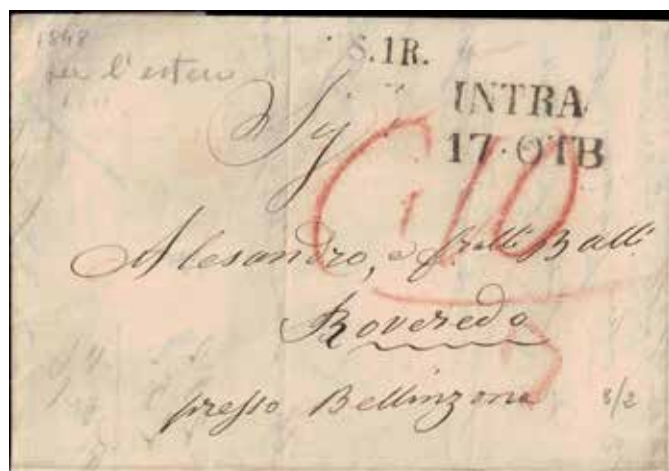 1848
per l'estero
S.1R.
INTRA
17·OTB
Sig.ri
10
Alesandro, e fratlli Balli
Roveredo
presso Bellinzona
8/2